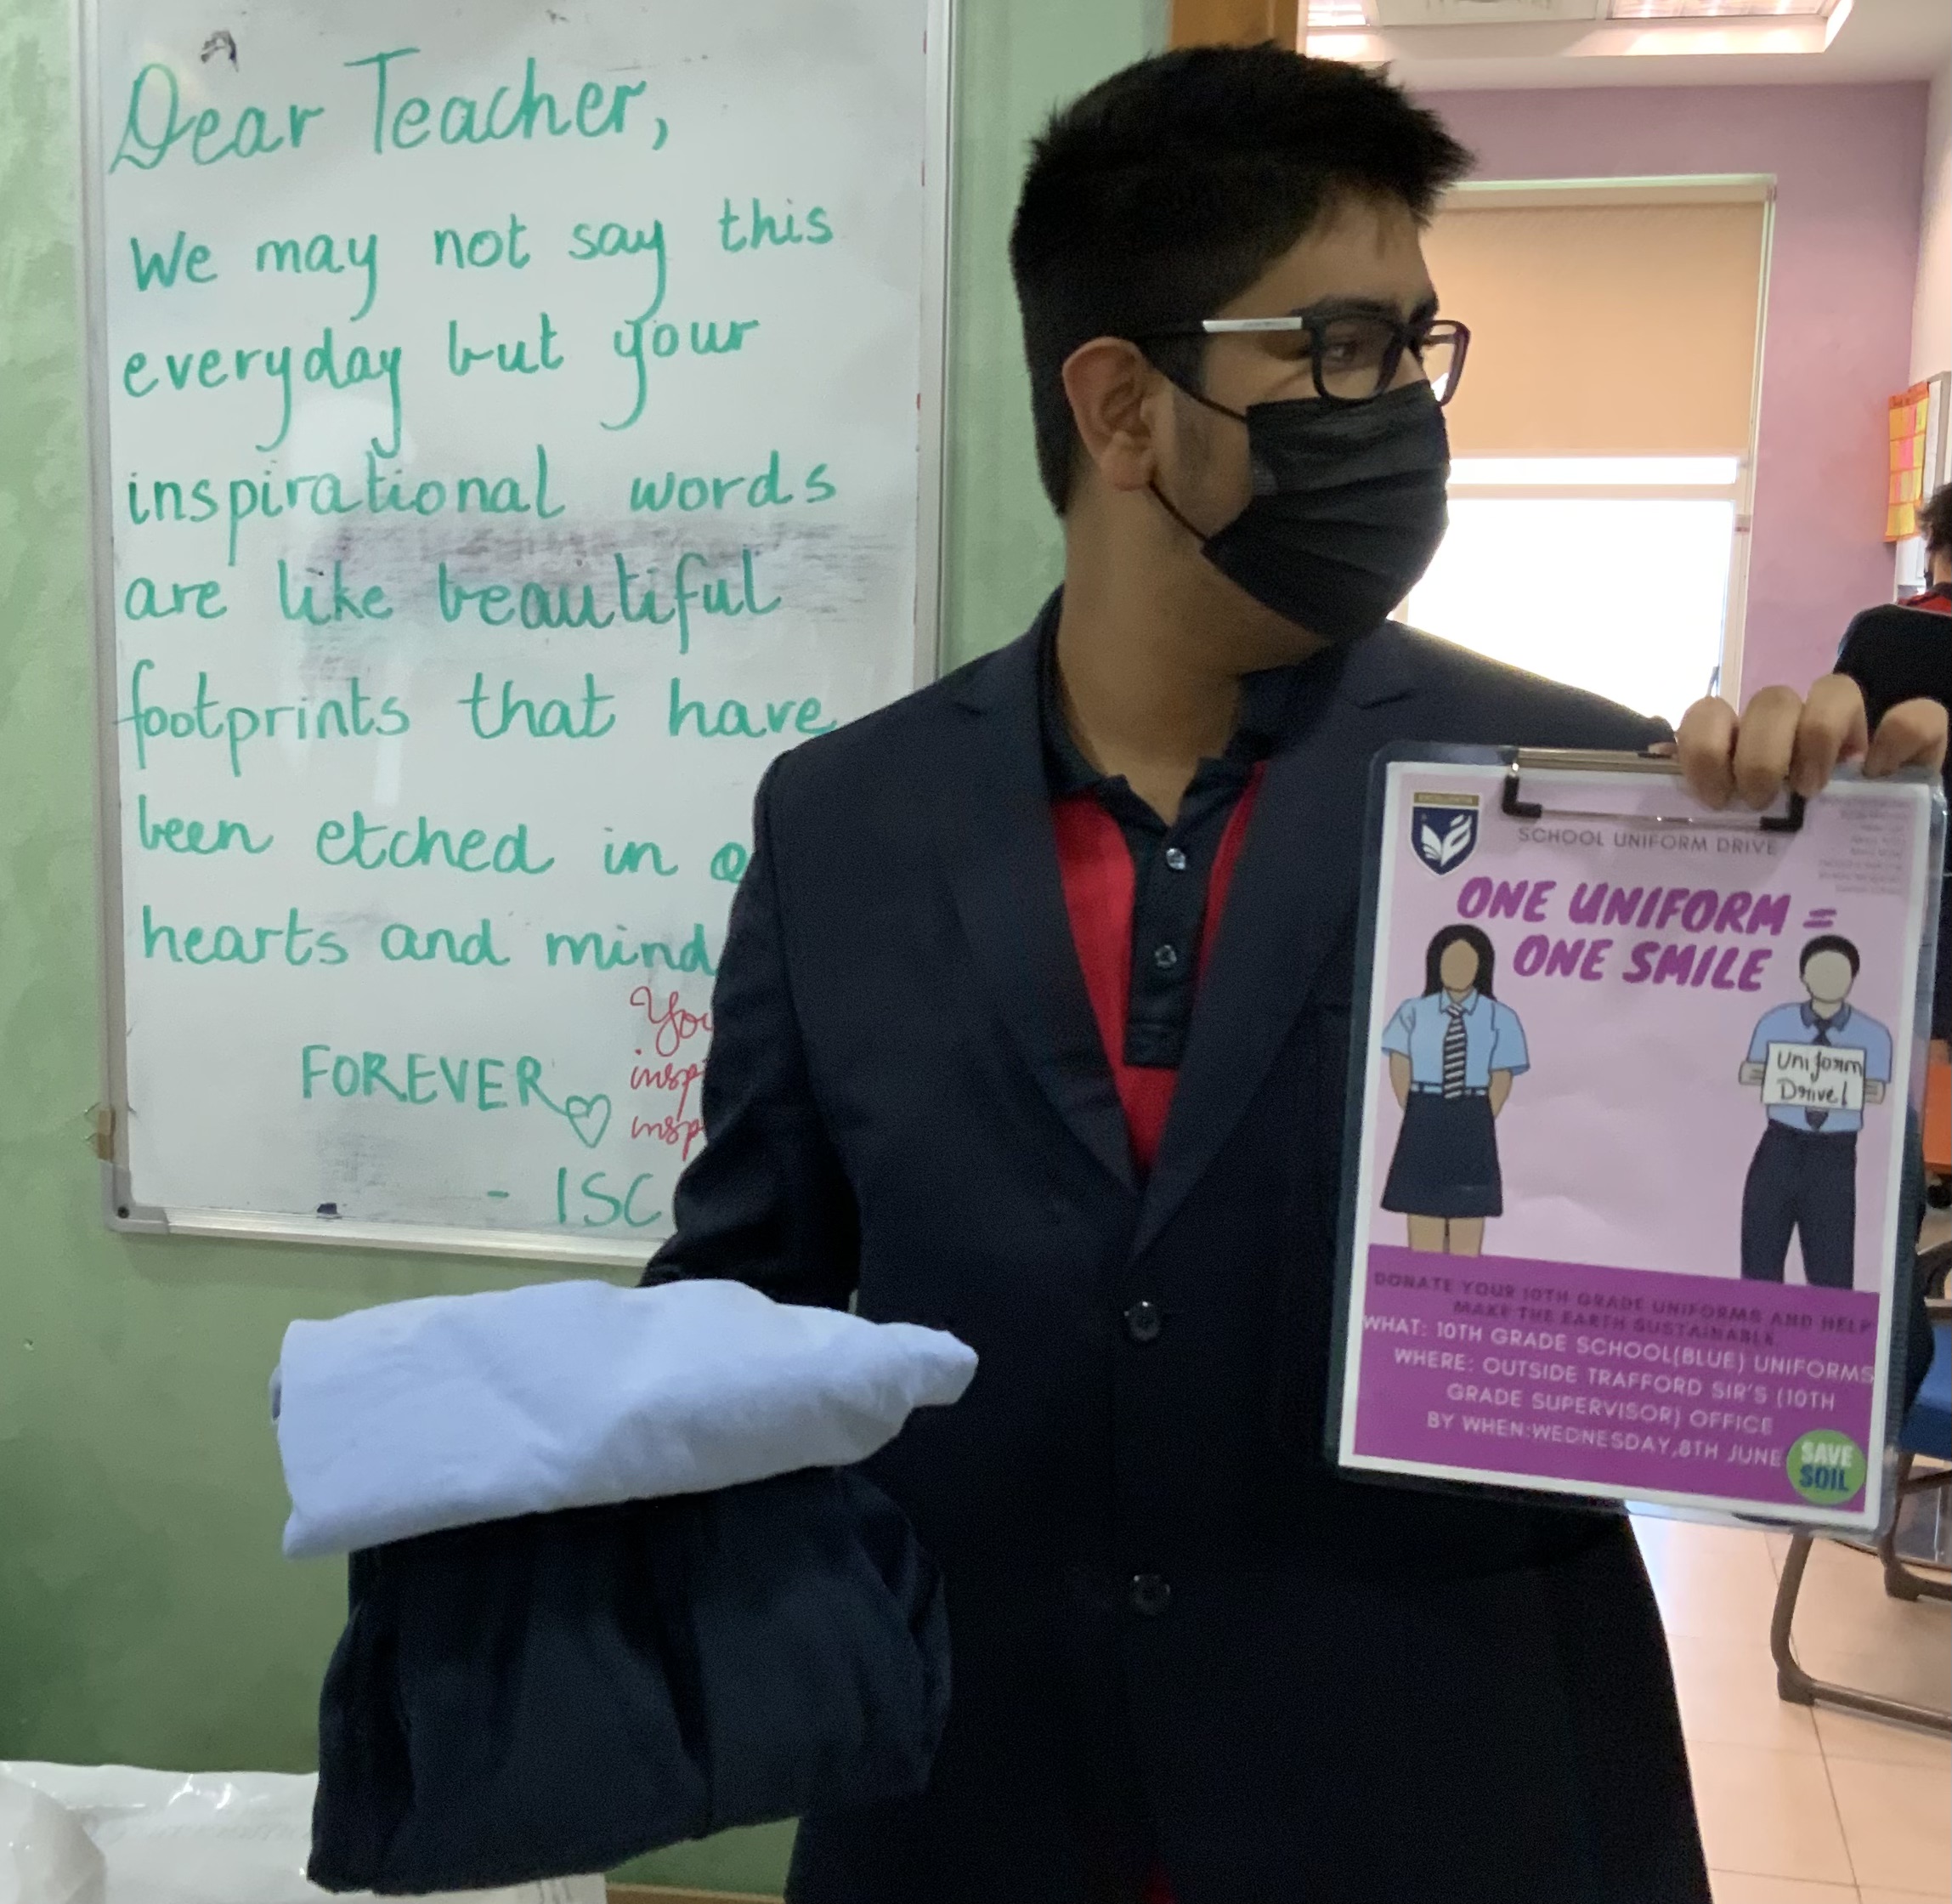 Dear Teacher,
We may not say this
everyday but your
inspirational words
are like beautiful
footprints that have
been etched in
hearts and mind
FOREVER
- ISC
SCHOOL UNIFORM DRIVE
ONE UNIFORM =
ONE SMILE
Uniform
Drive!
DONATE YOUR 10TH GRADE UNIFORMS AND HELP
MAKE THE EARTH SUSTAINABLE
WHAT: 10TH GRADE SCHOOL(BLUE) UNIFORMS
WHERE: OUTSIDE TRAFFORD SIR'S (10TH
GRADE SUPERVISOR) OFFICE
BY WHEN:WEDNESDAY,8TH JUNE
SAVE
SOIL